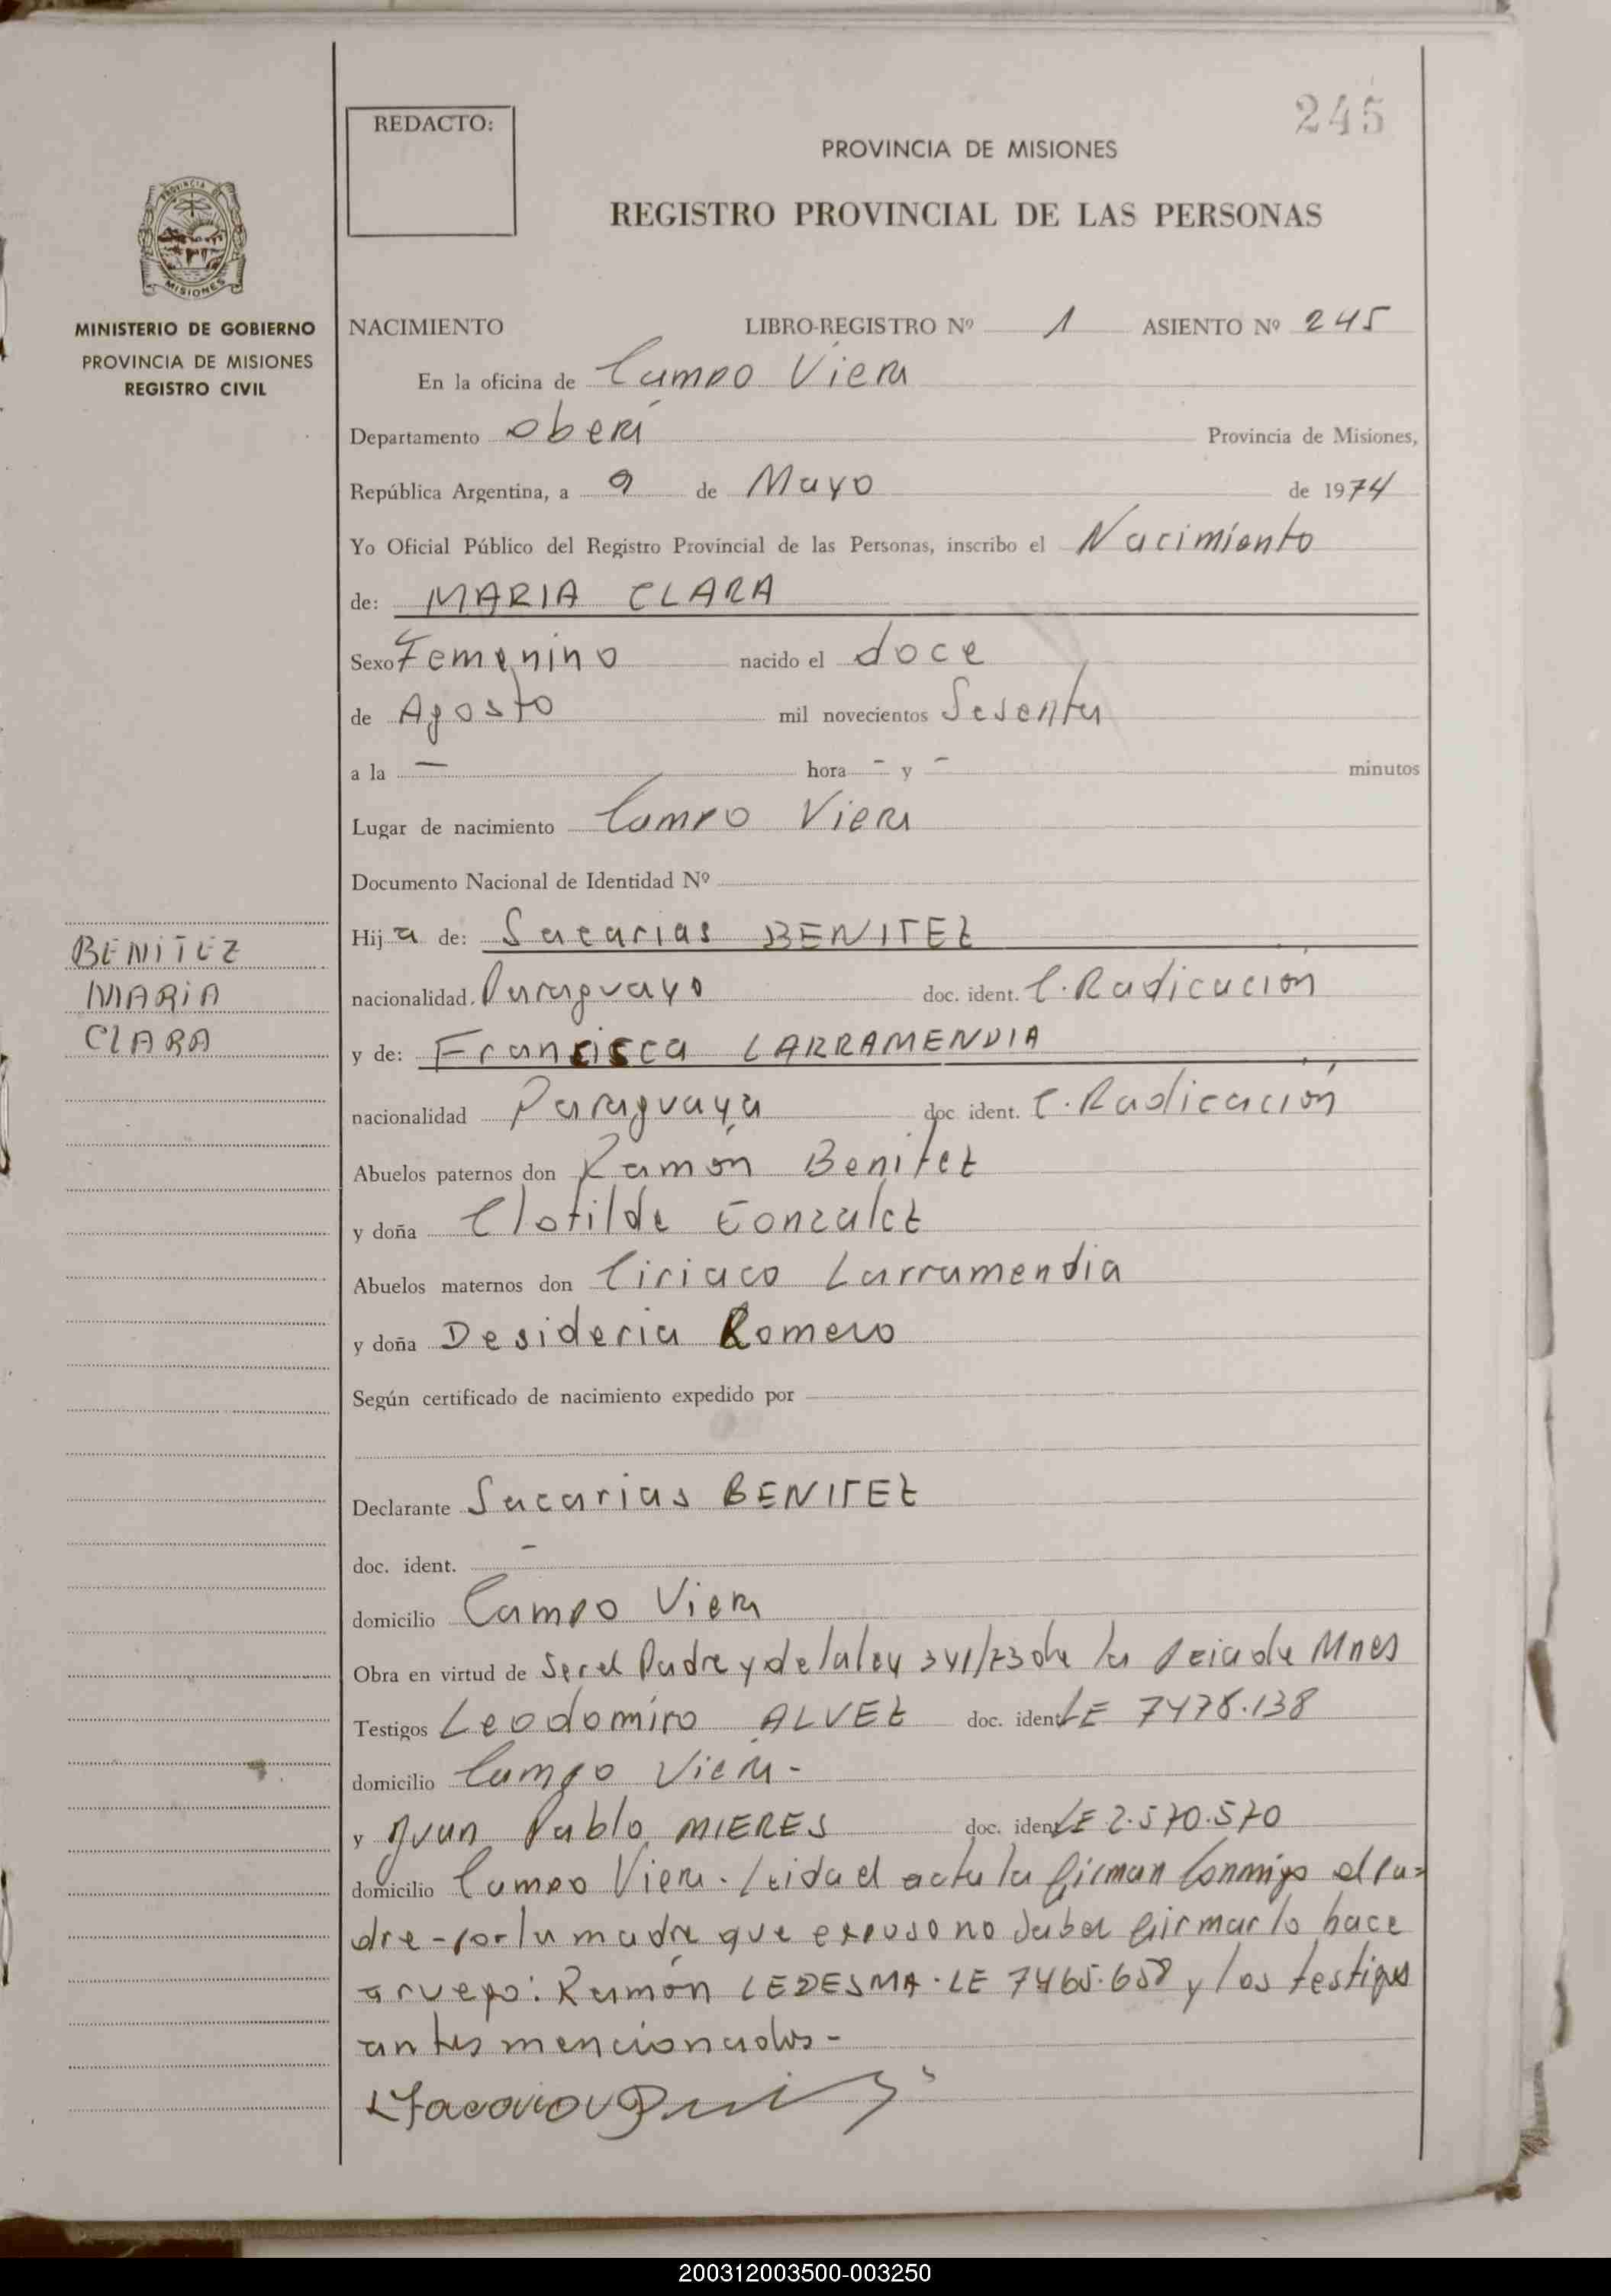 245
REDACTO:
PROVINCIA DE MISIONES
REGISTRO PROVINCIAL DE LAS PERSONAS
PROVINCIA DE
MISIONES
MINISTERIO DE GOBIERNO
PROVINCIA DE MISIONES
REGISTRO CIVIL
NACIMIENTO LIBRO-REGISTRO Nº 1 ASIENTO Nº 245
En la oficina de Campo Viera
Departamento Oberá Provincia de Misiones,
República Argentina, a 9 de Mayo de 1974
Yo Oficial Público del Registro Provincial de las Personas, inscribo el Nacimiento
de: MARIA CLARA
Sexo Femenino nacido el doce
de Agosto mil novecientos Sesenta
a la — hora - y - minutos
Lugar de nacimiento Campo Viera
Documento Nacional de Identidad Nº
BENITEZ
MARIA
CLARA
Hija de: Sacarias BENITEZ
nacionalidad. Paraguayo doc. ident. C. Radicación
y de: Francisca LARRAMENDIA
nacionalidad Paraguaya doc. ident. C. Radicación
Abuelos paternos don Ramón Benitez
y doña Clotilde Gonzalez
Abuelos maternos don Ciriaco Larramendia
y doña Desideria Romero
Según certificado de nacimiento expedido por
Declarante Sacarias BENITEZ
doc. ident. -
domicilio Campo Viera
Obra en virtud de Ser el Padre y de la ley 341/73 de la Pcia de Mnes
Testigos Leodomiro ALVEZ doc. ident LE 7478.138
domicilio Campo Viera-
y Juan Pablo MIERES doc. ident LE 2.570.570
domicilio Campo Viera. Leida el acta la firman Conmigo el Pa-
dre - por la madre que expuso no saber firmar lo hace
a ruego: Ramón LEDESMA. LE 7465.658 y los testigos
antes mencionados-
200312003500-003250